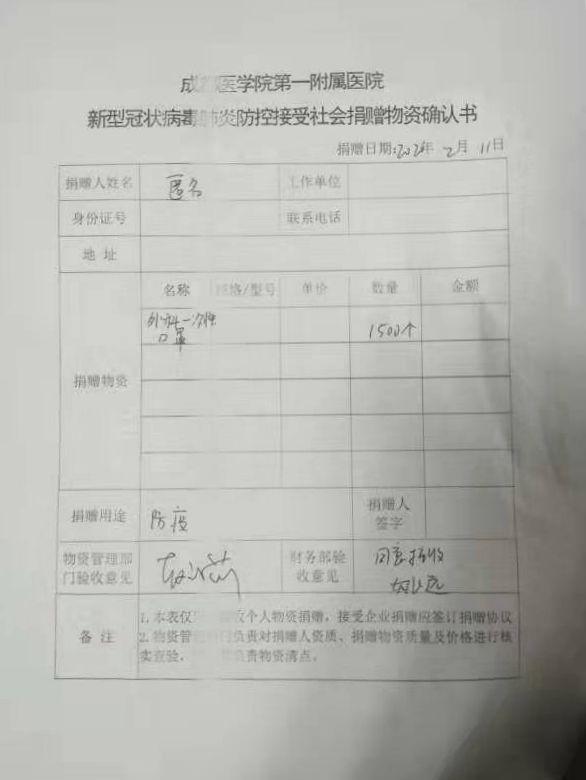 成都医学院第一附属医院
新型冠状病毒肺炎防控接受社会捐赠物资确认书
捐赠日期:2020年 2月 11日
捐赠人姓名 匿名 工作单位
身份证号 联系电话
地 址
捐赠物资
名称 规格/型号 单价 数量 金额
外科一次性 1500个
口罩
捐赠用途 防疫 捐赠人
签字
物资管理部
门验收意见
财务部验
收意见
同意接收
备 注
1.本表仅 个人物资捐赠，接受企业捐赠应签订捐赠协议
2.物资管 负责对捐赠人资质、捐赠物资质量及价格进行核
实查验， 负责物资清点。